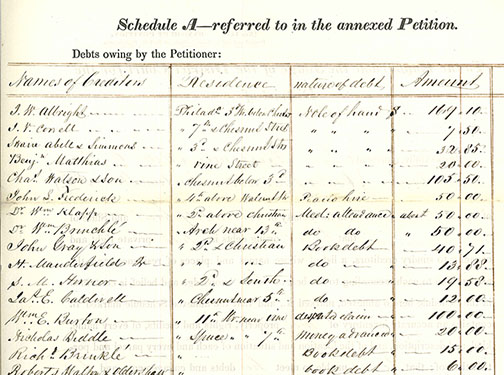 Schedule A—referred to in the annexed Petition.
Debts owing by the Petitioner:
Names of Creditors Residence nature of debt Amount
J. W. Albright Philada 5th below Note of hand $ 169.10
J. V. Conell " 7th & Chesnut Street " " " " 7.50
Abell & Simmons " 3d & Chesnut " " " " 32.85
Benjn Matthias " vine Street " " " " 20.00
Chas Watson & Son " chesnut below 3d " 105.50
John S. Frederick " 4th above Walnut Piano hire " 50.00
Dr Wm Klapp " 2d above christian Med: attendance about 50.00
Dr Wm Brinckle " Arch near 13th do do " 50.00
John Gray & Son " 2d & Christian Book debt " 40.71
H. Manderfield Jr " do " 13.88
S. M. Hornor " 2d & South do " 19.58
Jas. E. Caldwell " Chesnut near 5th do " 12.00
Wm E. Burton " 11th Nr. near vine disputed claim " 100.00
Nicholas Biddle " Spruce " " 7th money advanced " 20.00
Richd Brinkle " Book debt " 15.00
Roberts " book debt " 6.00